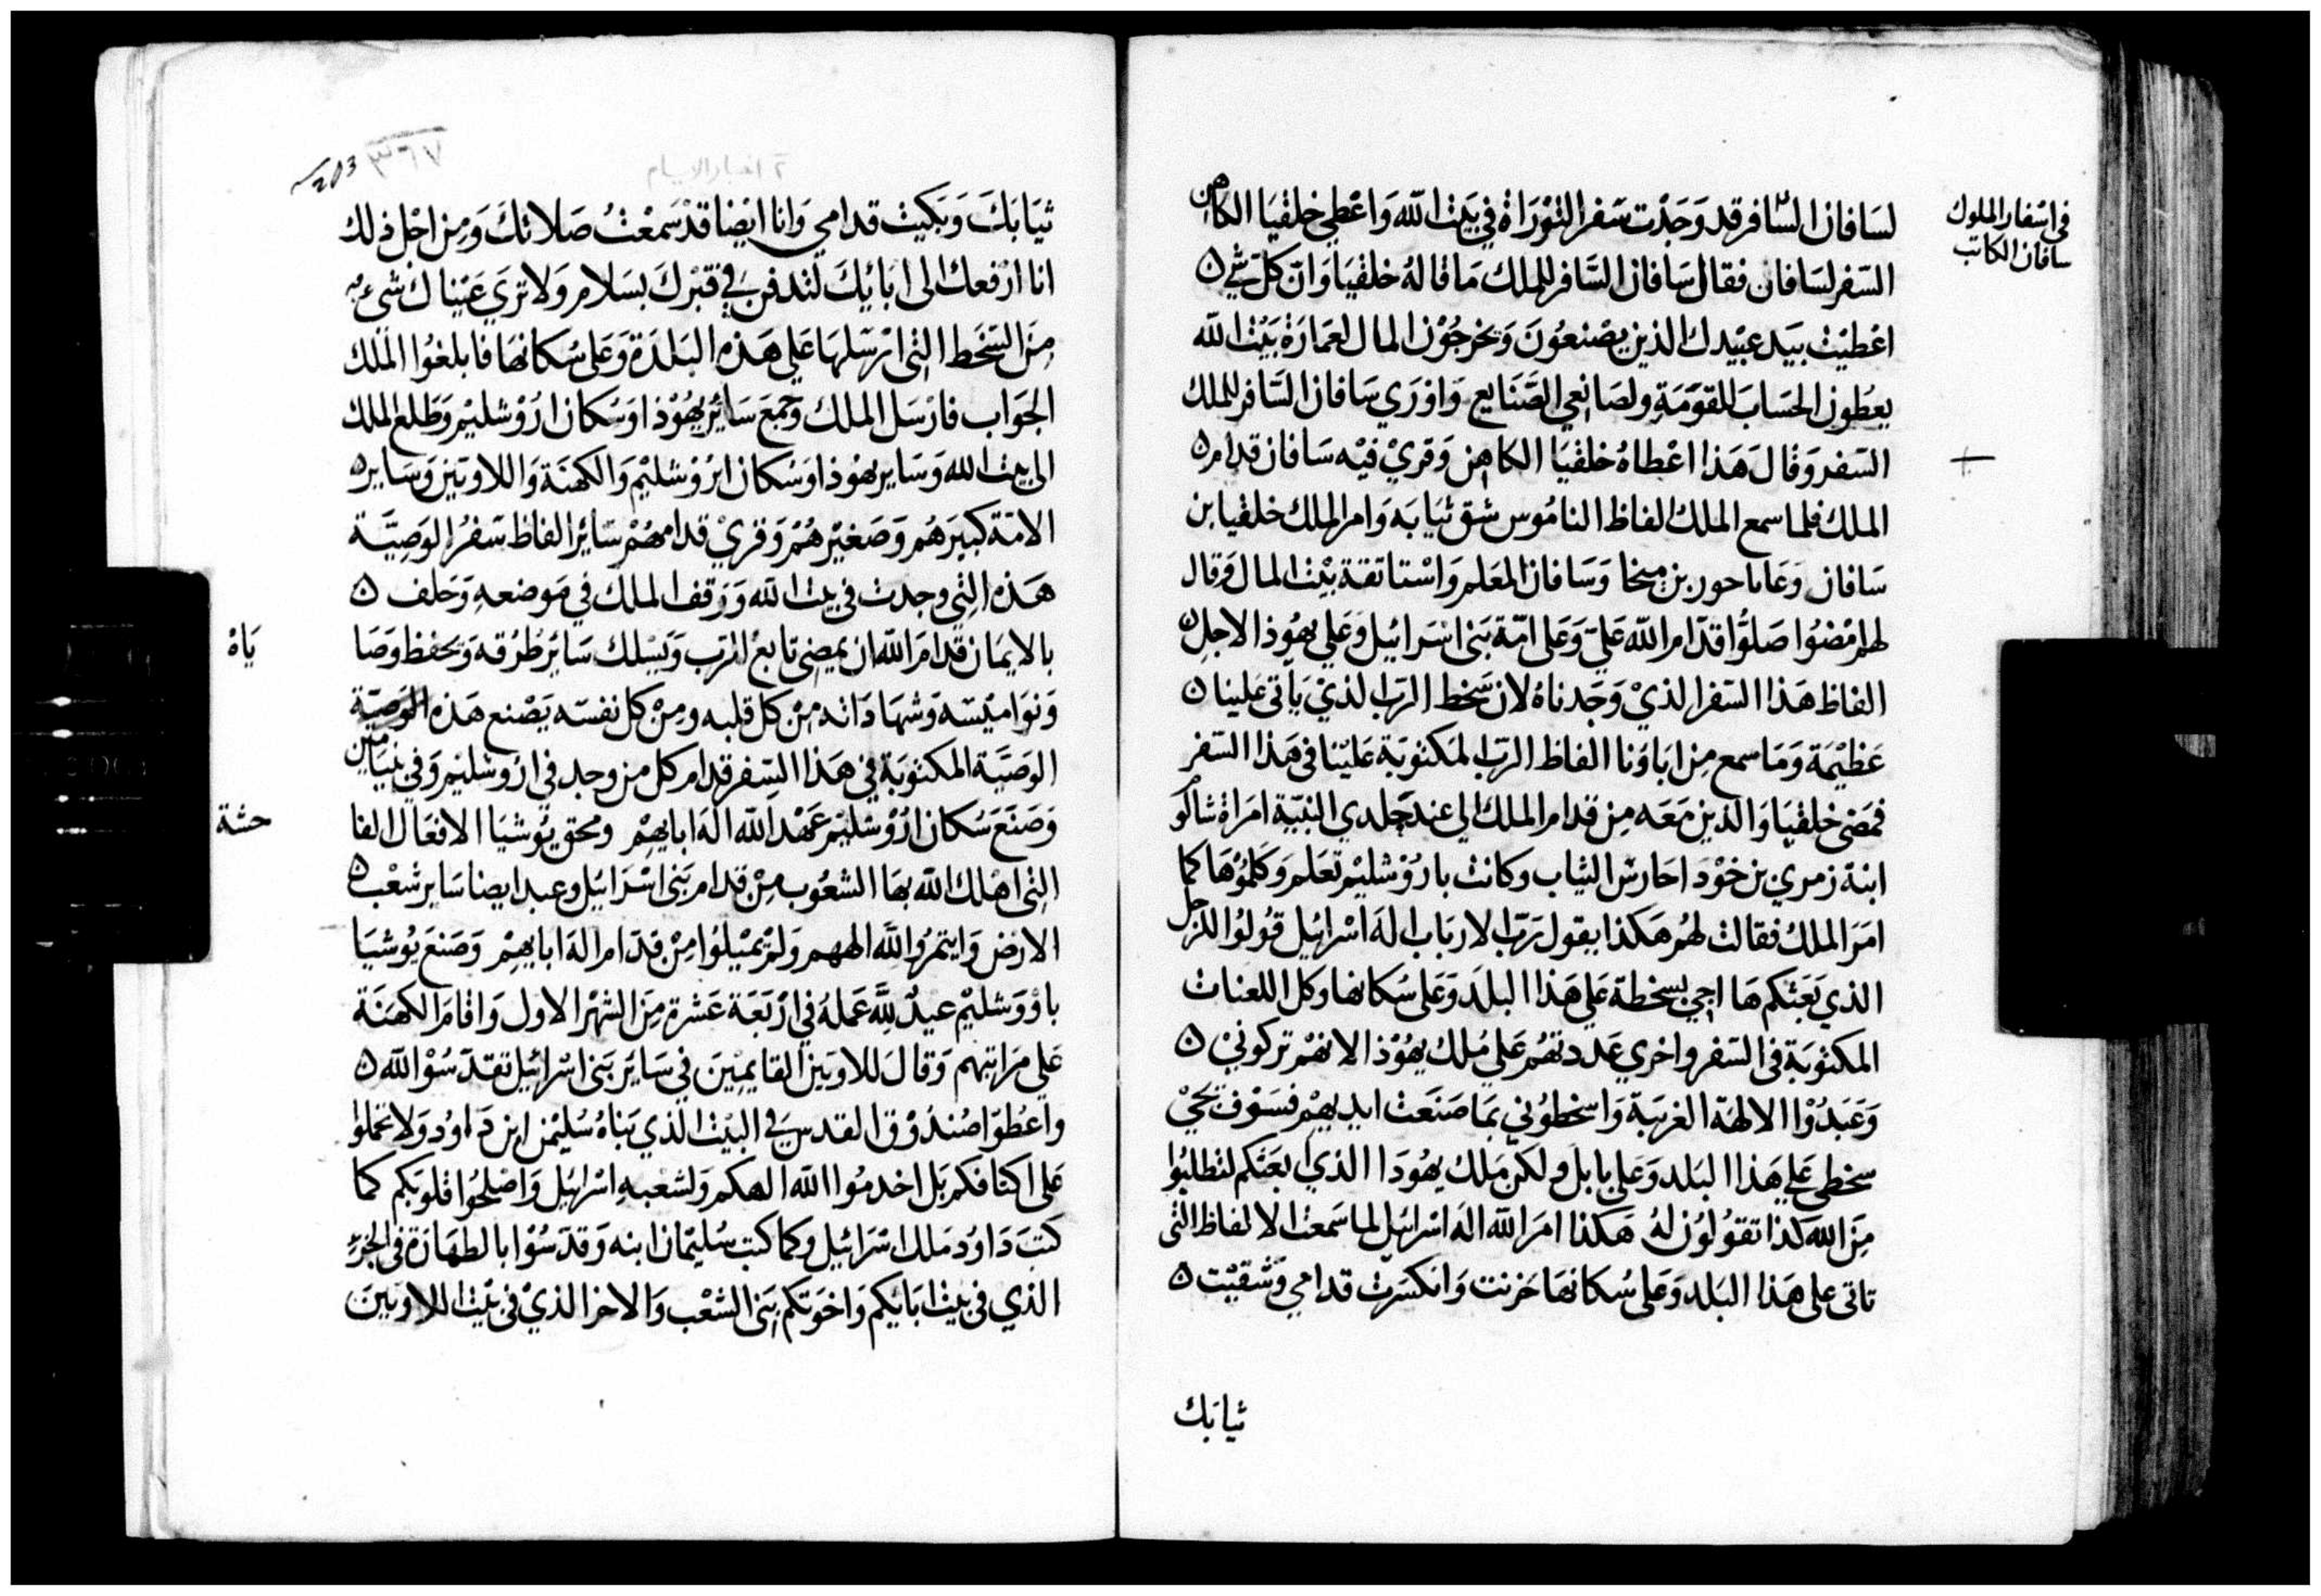 في اسفار الملوك
سافان الكاتب
لسَافان السَّافر قد وَجَدْت سَفر التوْرَاة في بَيت الله وَاعْطي خلقيَا الكاهن
السَفر لسَافان فقال سَافان السَّافر للملك مَا قالهُ خلقيَا وَان كل شي ٥
اعْطيْت بيَد عبيْدك الذين يصْنعُونَ وَيخرجُوْن المال لعمَارَة بَيْت الله
يعطون الحسَاب للقوَمَةِ ولصَانعي الصَّنَايع وَاوْرَي سَافان السَّافر للملك
السَفر وَقالَ هَذا اعْطاهُ خلقيَا الكاهن وَقريْ فيْه سَافان قدام ٥
الملك فلما سمع الملكُ الفاظ النامُوس شق ثيَابَه وَامر الملك خلقيا بن
سَافان وَعَاباحور بن ميخا وَسَافان المعَلم وَاسْتا ثقة بيْت المال وَقال
لهم امْضُوا صَلوُّا قدَّام الله عَليّ وَعَلى امّة بَني اسْرائيل وَعَلي يهُوذا لاجل ٥
الفاظ هَذا السَفر الذيْ وَجَدناهُ لان سَخط الرَب الذيْ يَاتى عَلينا ٥
عَظيْمَة وَمَا سمع من ابَاؤنا الفاظ الرَب المكتوبَة عَليْنا في هَذا السَفر
فمَضى خلقيَا وَالذين مَعَه مِن قدام الملك الى عند جلدي النبيّة امرَاة شالوم
ابنة زمري بن خوْدا حَارسَ الثياب وكانت باروُشليْم تعَلم وَكلموُهَا كما
امَرَ الملكُ فقالت لهُم هَكذا يقول رَبّ الارباب الهَ اسْرائيل قوُلوُا للرجل
الذي بَعَثكم هَا اجي بسخطة عَلي هَذا البلَد وَعَلى سُكانها وَكل اللعنات
المكتوبَة في السَفر واخري عَددتهُم عَلي مُلك يهُوْذا لانهُم تركونيْ ٥
وَعَبَدُوْا الالهَة الغريَبة وَاسخطوُني بمَا صَنَعَت ايديهِم فسَوْف يجيْ
سخطي عَلى هَذا البَلد وَعَلي بابل ولكن مَلك يهُودَا الذي بعَثكم لتطلبُوا
مِنَ الله كذا تقوُلوُن لهُ هَكذا امَرَ الله الهَ اسْرائيل لما سَمعتَ الالفاظ التى
تاتى على هَذا البَلد وَعَلى سُكانها حَزنت وَانكسَرت قدامي وَشقيْت ٥
ثيابَك
203 ٣٦٧
٢ اخبار الايام
ثيَابَكَ وَبَكيت قدامي وَانا ايْضا قدْ سَمعْتُ صَلاتكَ وَمِن اجْل ذلك
انا ارْفعك الى ابَائِكَ لتدفن في قبْرك بسَلام وَلا ترَي عَيْناك شىء
مِنَ السَّخط التى ارْسَلهَا عَلى هَذه البَلدَة وَعَلى سُكانهَا فابلغُوا الملك
الجوَاب فارْسَل الملك وَجمَعَ سَائرَ يهُوْذا وَسُكان ارُوْشليْم وَطلعَ الملك
الى بيت الله وَسَاير يهُوذا وَسُكان ارُوْشليْم وَالكهنَة وَاللاويَين وَسَاير ٥
الامّة كبيَرهُم وَصَغيْرهُم وَقريْ قدامهُم سَائر الفاظ سَفرُ الوَصيَّة
هَذه التي وجدت في بيت الله وَوَقف الملك في مَوضعهِ وَحَلف ٥
بالايمَان قدامَ الله ان يمضي تابعُ الرَب وَيَسْلك سَائرَ طرُقه وَيحفظ وَصَا
يَاهْ
وَنوَاميْسَه وَشهَادَاته مِنْ كل قلبه وَمِنْ كل نفسَه يَصْنع هَذه الوَصيَّة
الوَصيَّة المكتوَبة في هَذا السَفر قدام كل من وجد في ارُوشليْم وَفي بنيَامين
وَصَنَعَ سُكان ارُوْشليْم عَهْد الله الهَ ابايهِم ومحق يوُشيَا الافعَال الفا
حشة
التى اهْلك الله بهَا الشعُوب مِنْ قدام بَني اسْرَائيل وعبد ايضا سَاير شعْب ٥
الارض وَايتمرُوا لله الههم وَلم يميْلوُا مِنْ قدَّام الهَ ابايهِم وَصَنعَ يوُشيَا
باؤوَ شليْم عيدٌ للهِ عَملهُ في ارْبَعَة عَشرة مِنَ الشهْر الاول وَاقامَ الكهنَة
عَلي مرَاتبهم وَقالَ للاويَين القايمِيْنَ في سَايَر بَني اسْرائيل تقدَّسُوْا لله ٥
واعْطوَا صُندُوْق القدس في البيْت الذي بَناهُ سُليْمن ابن دَاوُد وَلا تحملوا
عَلى اكتافكم بَل اخدمُوا الله الهكم وَلشعْبهِ اسْرائيل وَاصْلحُوا قلوبَكم كما
كتبَ دَاوُد مَلك اسْرائيل وكما كتب سُليْمان ابنه وَقدسُوْا بالطهَارَة في الجزء
الذي في بيْت ابَايكم وَاخوَتكم بَنى الشعْب وَالاخر الذيْ في بَيْت اللاويينَ